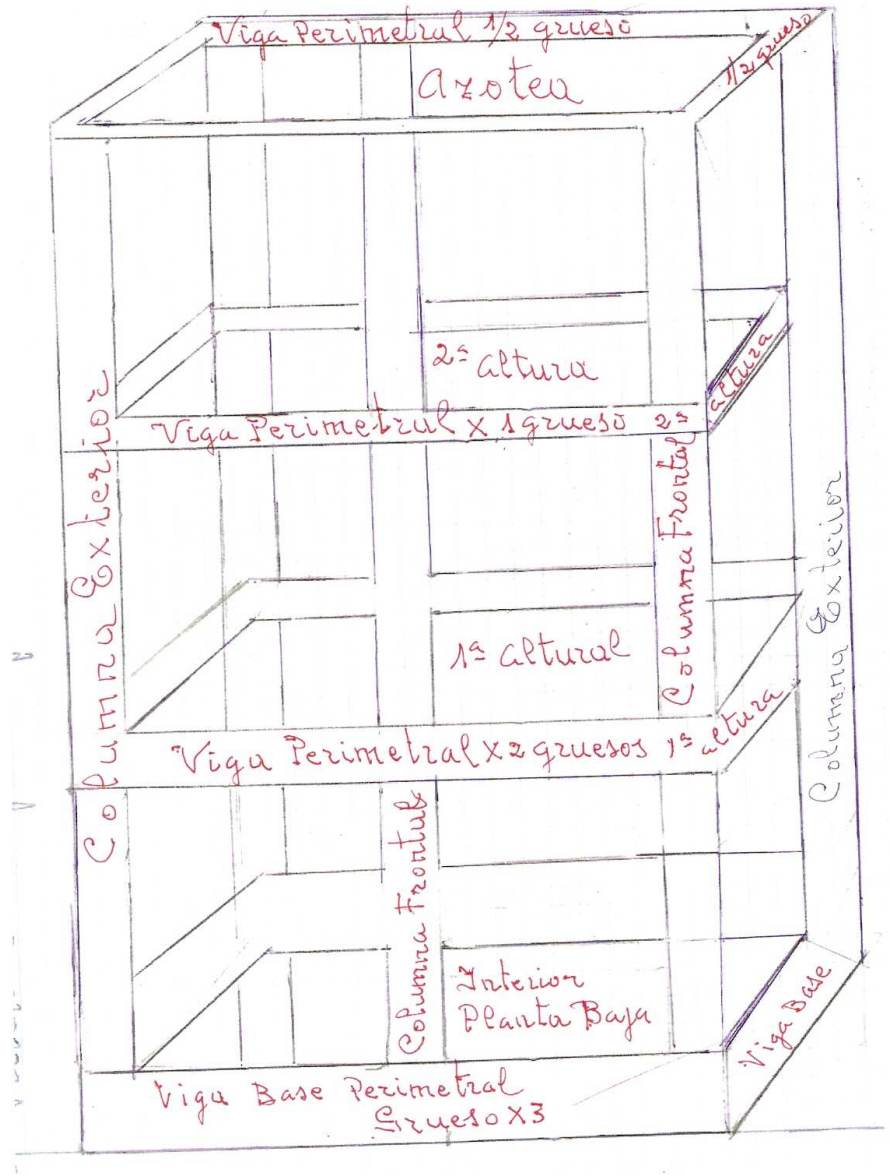 Viga Perimetral 1/2 grueso
1/2 grueso
Azotea
2ª altura
Viga Perimetral x 1 grueso 2ª altura
Columna Exterior
Columna Frontal
Columna Exterior
1ª altural
Viga Perimetral x 2 gruesos 1ª altura
Columna Frontal
Interior
Planta Baja
Viga Base
Viga Base Perimetral
Grueso x3